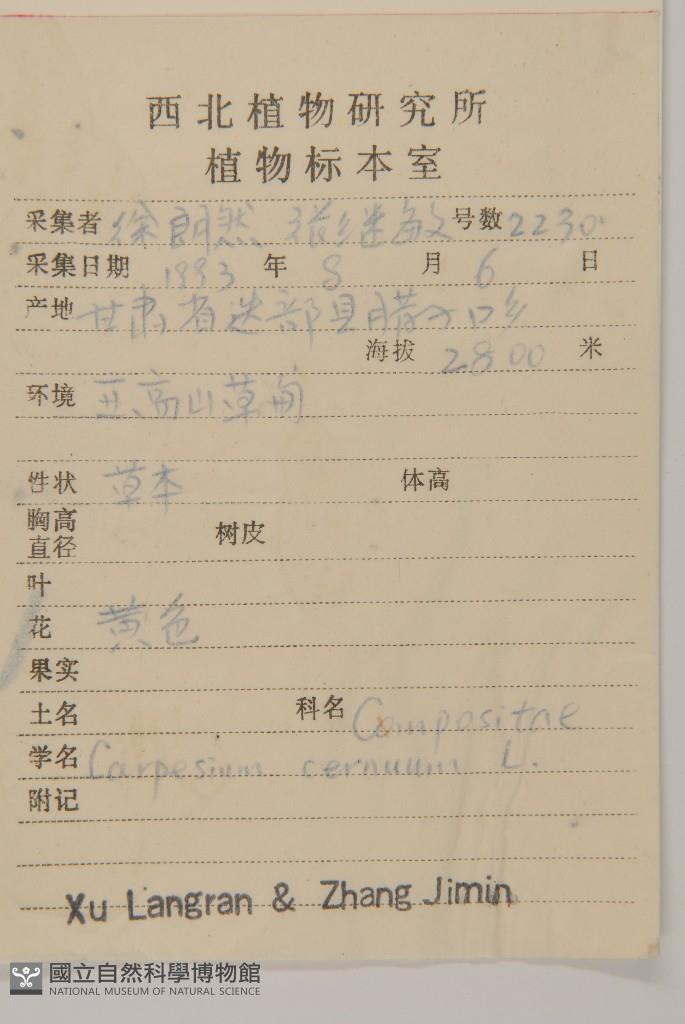 西北植物研究所
植物标本室
采集者 徐朗然 张继敏 号数 2230
采集日期 1993 年 8 月 6 日
产地 甘肃省迭部县腊子口乡
海拔 2800 米
环境 亚高山草甸
性状 草本 体高
胸高直径 树皮
叶
花 黄色
果实
土名 科名 Compositae
学名 Carpesium cernuum L.
附记
Xu Langran & Zhang Jimin
國立自然科學博物館
NATIONAL MUSEUM OF NATURAL SCIENCE